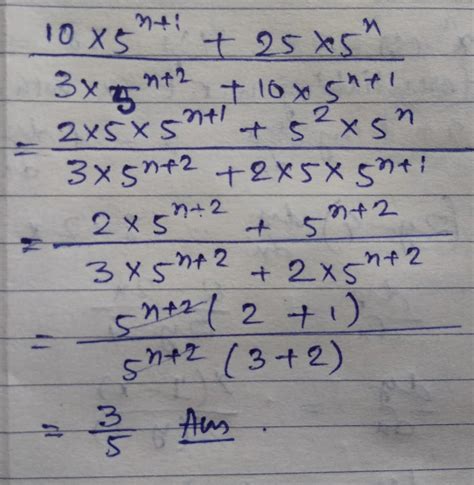 10 × 5^{n+1} + 25 × 5^n
3 × 5^{n+2} + 10 × 5^{n+1}
= 2 × 5 × 5^{n+1} + 5^2 × 5^n
3 × 5^{n+2} + 2 × 5 × 5^{n+1}
= 2 × 5^{n+2} + 5^{n+2}
3 × 5^{n+2} + 2 × 5^{n+2}
= 5^{n+2} ( 2 + 1 )
5^{n+2} ( 3 + 2 )
= 3
5 Ans .